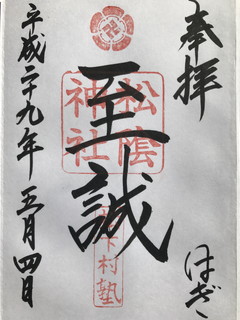 奉拝
はぎ
至誠
松陰
神社
松下村塾
平成二十九年五月四日